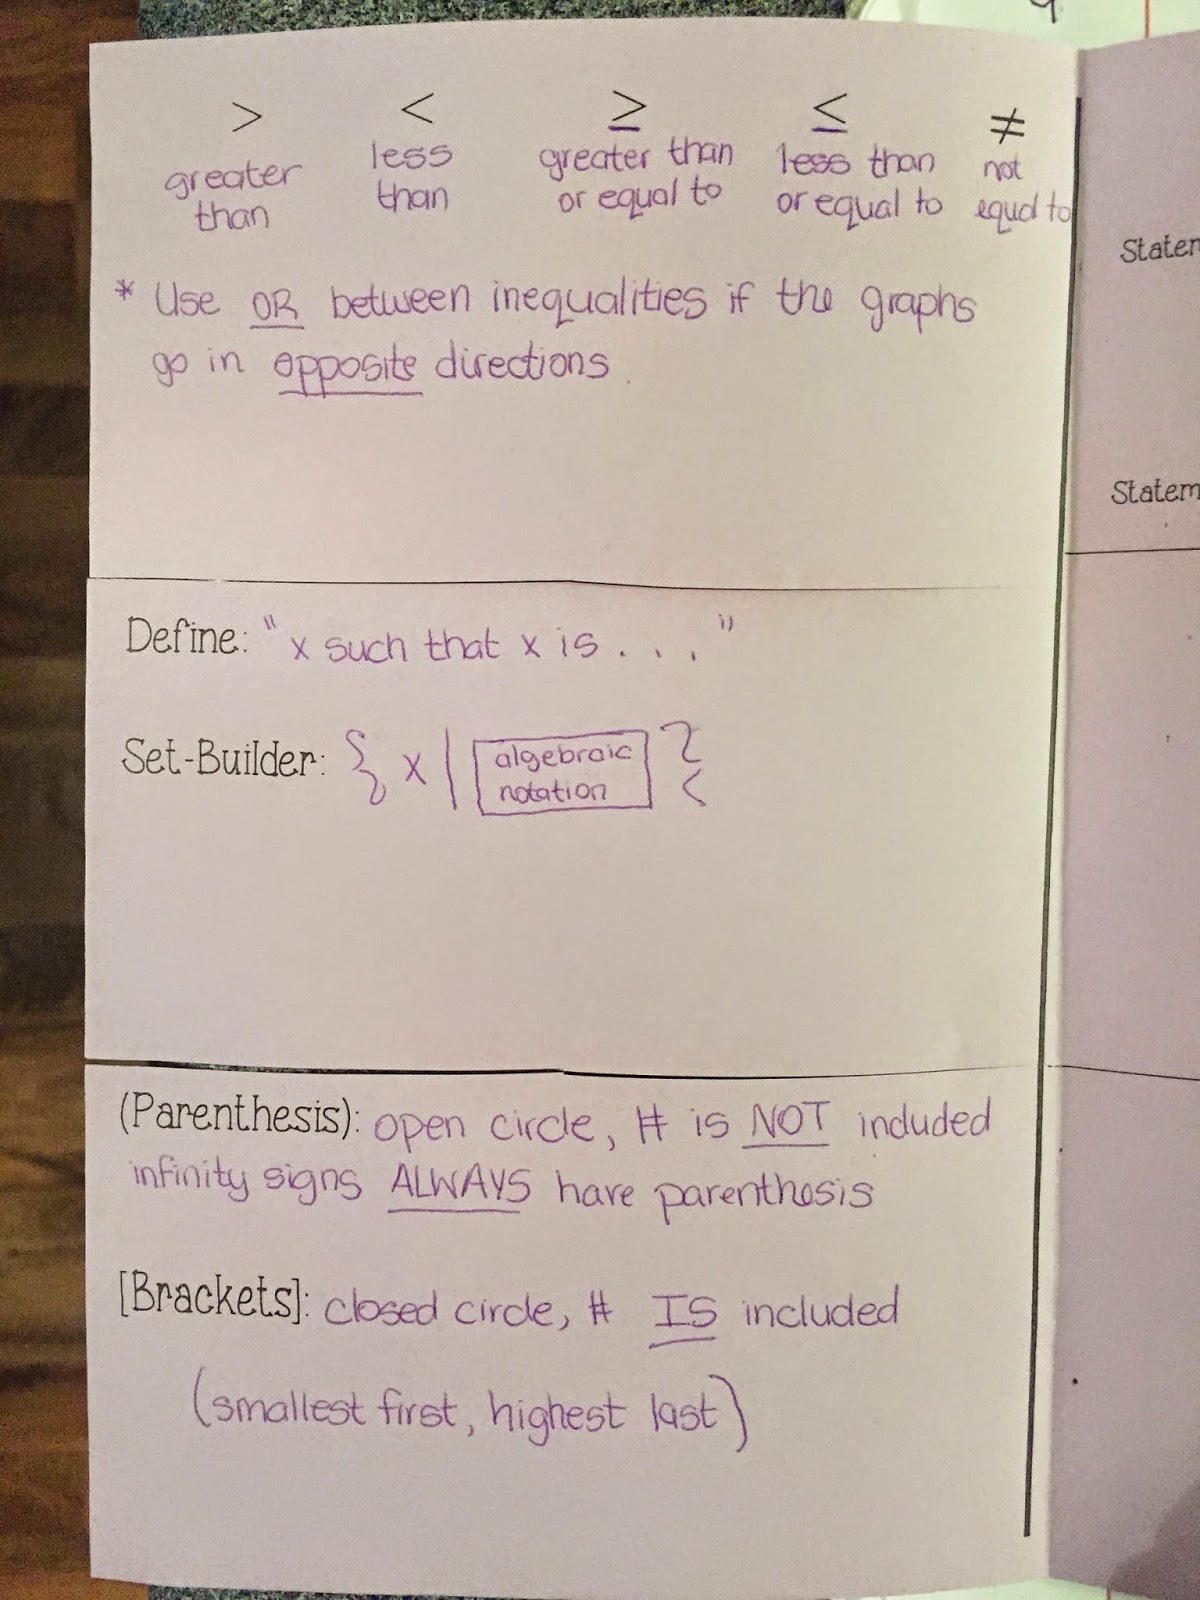 > < ≥ ≤ ≠
greater than
less than
greater than or equal to
less than or equal to
not equal to
* Use OR between inequalities if the graphs
go in opposite directions
Define: "x such that x is . . ."
Set-Builder: { x | algebraic notation }
(Parenthesis): open circle, # is NOT included
infinity signs ALWAYS have parenthesis
[Brackets]: closed circle, # IS included
(smallest first, highest last)